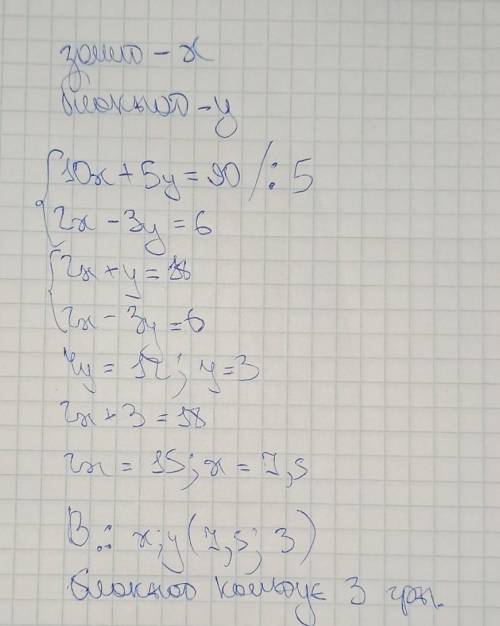 зошит - x
блокнот - y
{ 10x + 5y = 90 /: 5
2x - 3y = 6
{ 2x + y = 18
2x - 3y = 6
4y = 12; y = 3
2x + 3 = 18
2x = 15; x = 7,5
В.: x; y (7,5; 3)
блокнот коштує 3 грн.